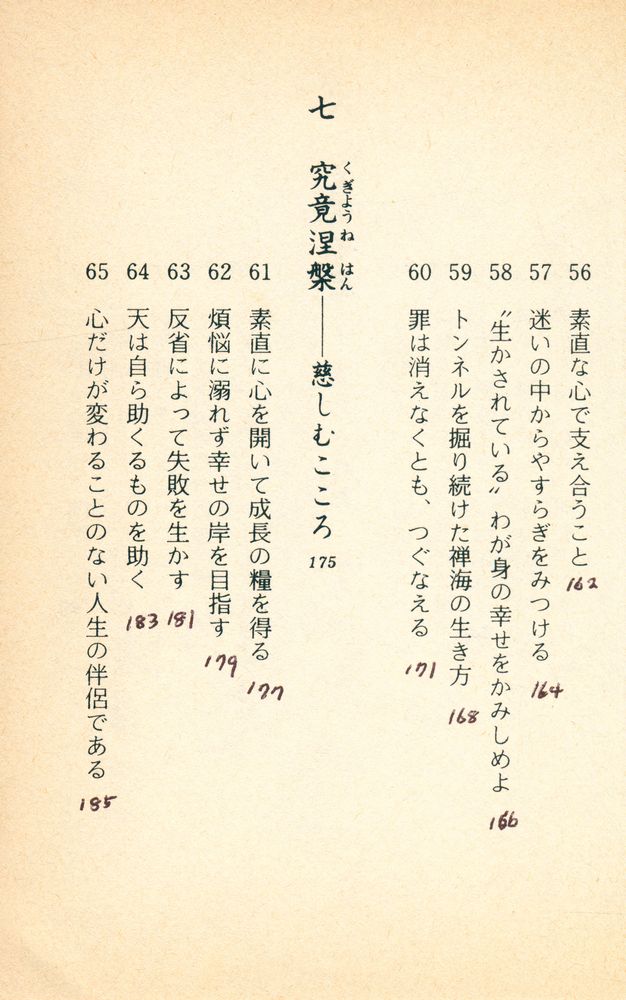 56 素直な心で支え合うこと 162
57 迷いの中からやすらぎをみつける 164
58 〝生かされている〟わが身の幸せをかみしめよ 166
59 トンネルを掘り続けた禅海の生き方 168
60 罪は消えなくとも、つぐなえる 171
七 究竟涅槃――慈しむこころ 175
くぎようね はん
61 素直に心を開いて成長の糧を得る 177
62 煩悩に溺れず幸せの岸を目指す 179
63 反省によって失敗を生かす 181
64 天は自ら助くるものを助く 183
65 心だけが変わることのない人生の伴侶である 185